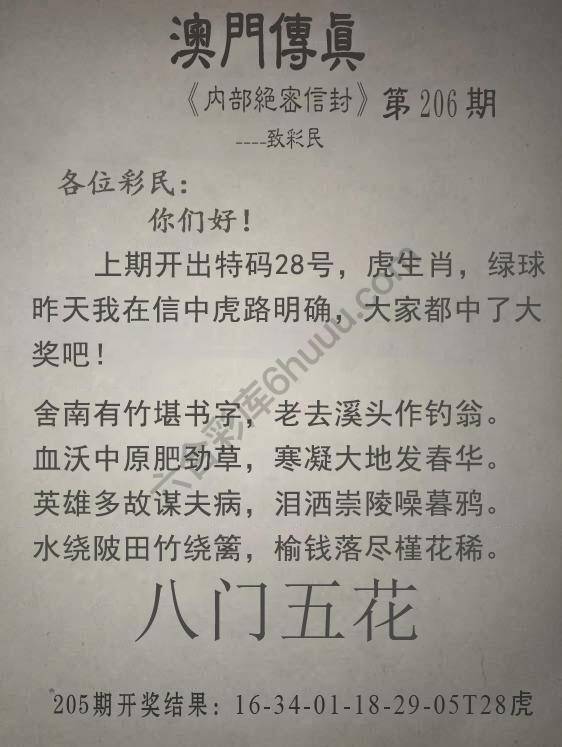 澳門傳真
《内部絕密信封》第206期
----致彩民
各位彩民：
你们好！
上期开出特码28号，虎生肖，绿球
昨天我在信中虎路明确，大家都中了大
奖吧！
舍南有竹堪书字，老去溪头作钓翁。
血沃中原肥劲草，寒凝大地发春华。
英雄多故谋夫病，泪洒崇陵噪暮鸦。
水绕陂田竹绕篱，榆钱落尽槿花稀。
八门五花
205期开奖结果：16-34-01-18-29-05T28虎
六合彩库6huuu.com